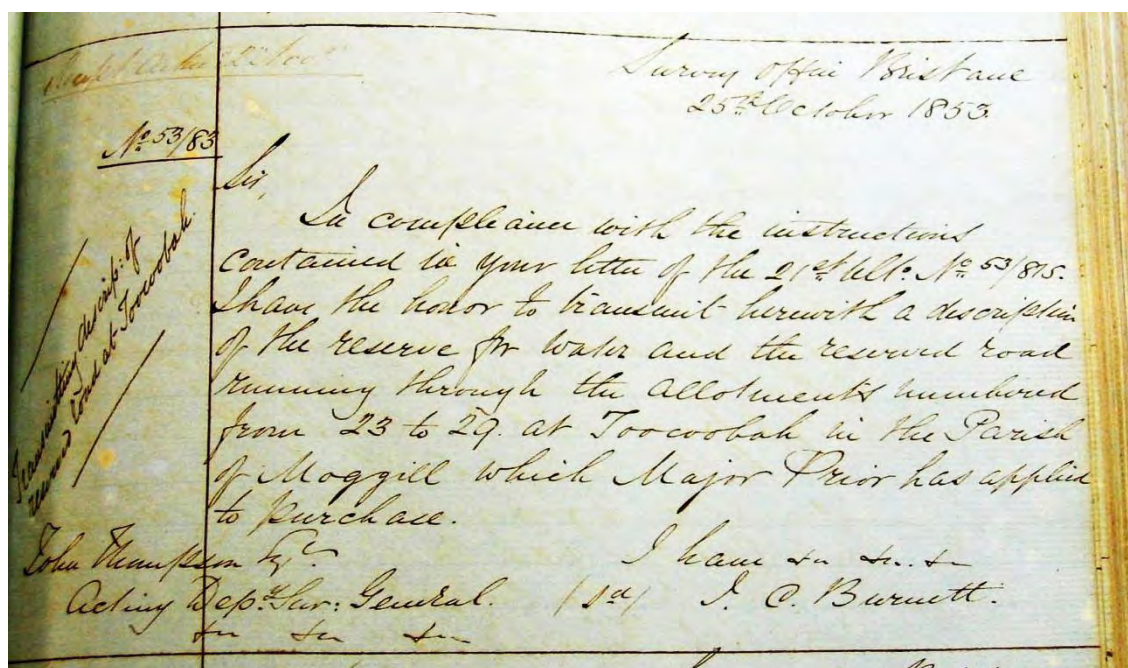 Survey Office Brisbane
25th October 1853.
No 53/83
Transmitting descrip: of
reserved road at Toocoobah.
Sir,
In compliance with the instructions
contained in your letter of the 21st Ulto. No 53/815.
I have the honor to transmit herewith a description
of the reserve for water and the reserved road
running through the allotments numbered
from 23 to 29. at Toocoobah in the Parish
of Moggill which Major Prior has applied
to purchase.
John Thompson Esqr.
I have &c &c. &c
Acting Depy. Sur: General. (sd) J. C. Burnett.
&c &c &c